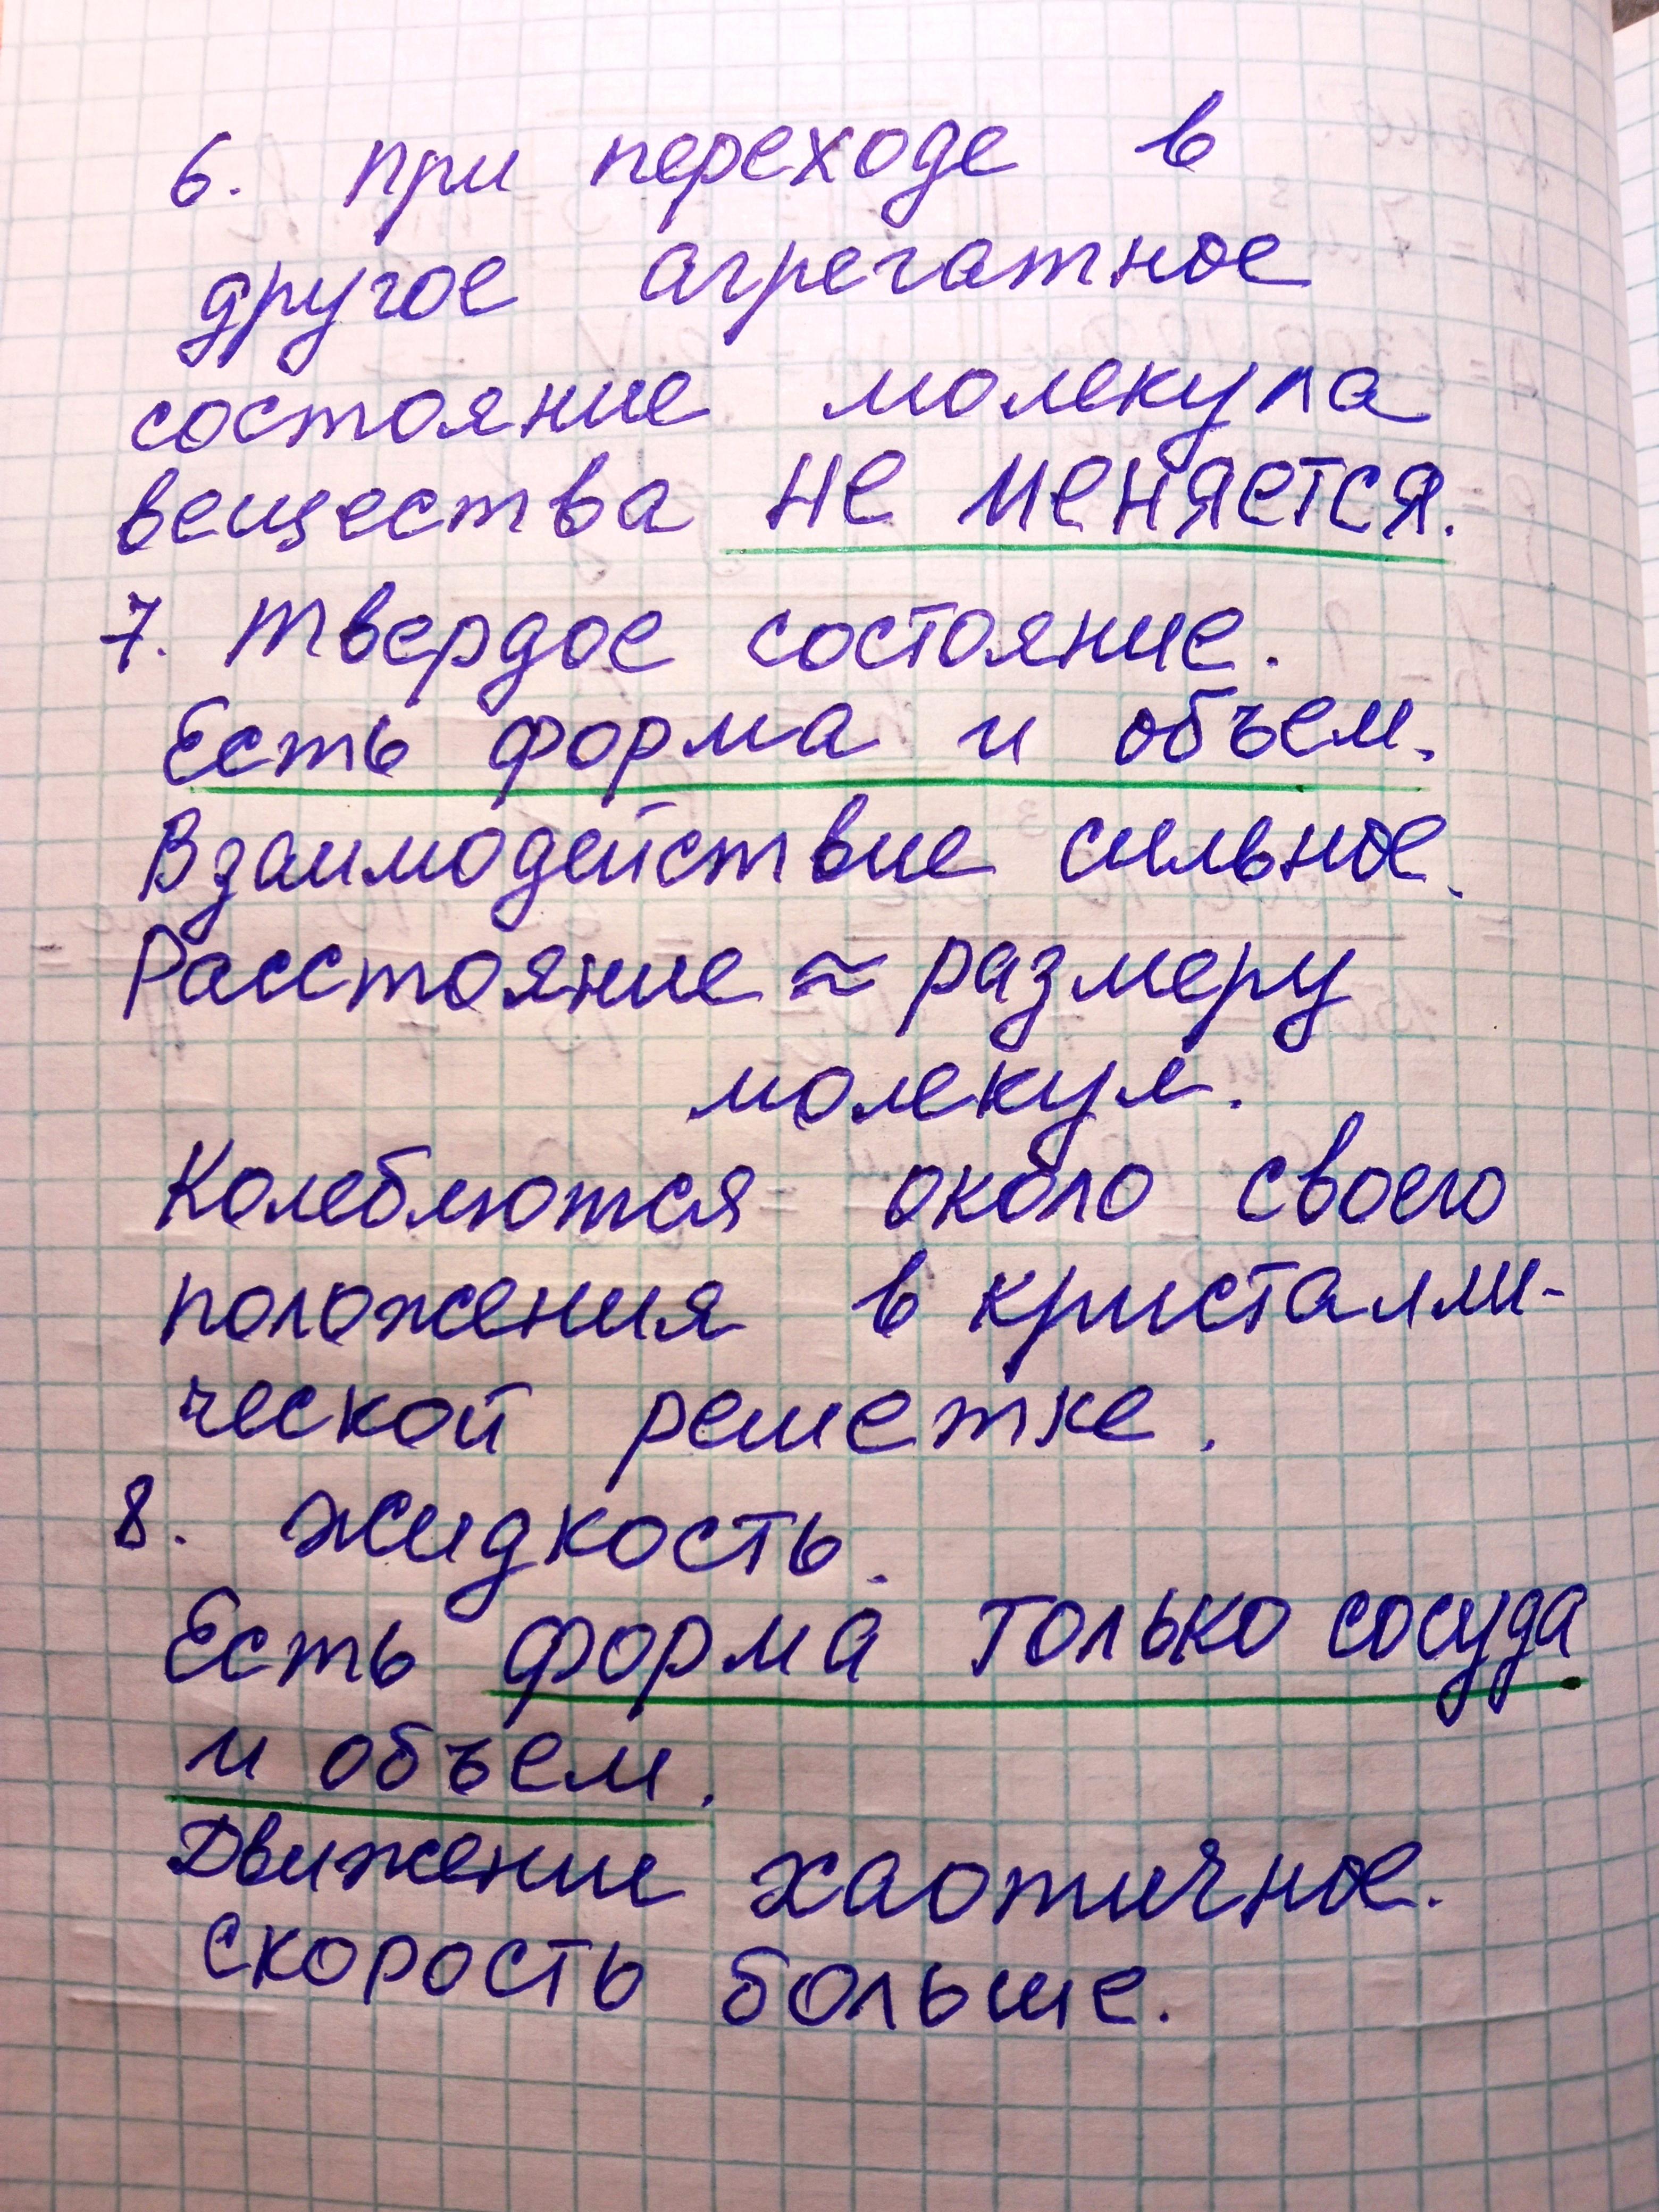 6. При переходе в
другое агрегатное
состояние молекула
вещества не меняется.
7. Твердое состояние.
Есть форма и объем.
Взаимодействие сильное.
Расстояние ≈ размеру
молекул.
Колеблются около своего
положения в кристалли-
ческой решетке.
8. Жидкость.
Есть форма только сосуда
и объем.
Движение хаотичное.
Скорость больше.